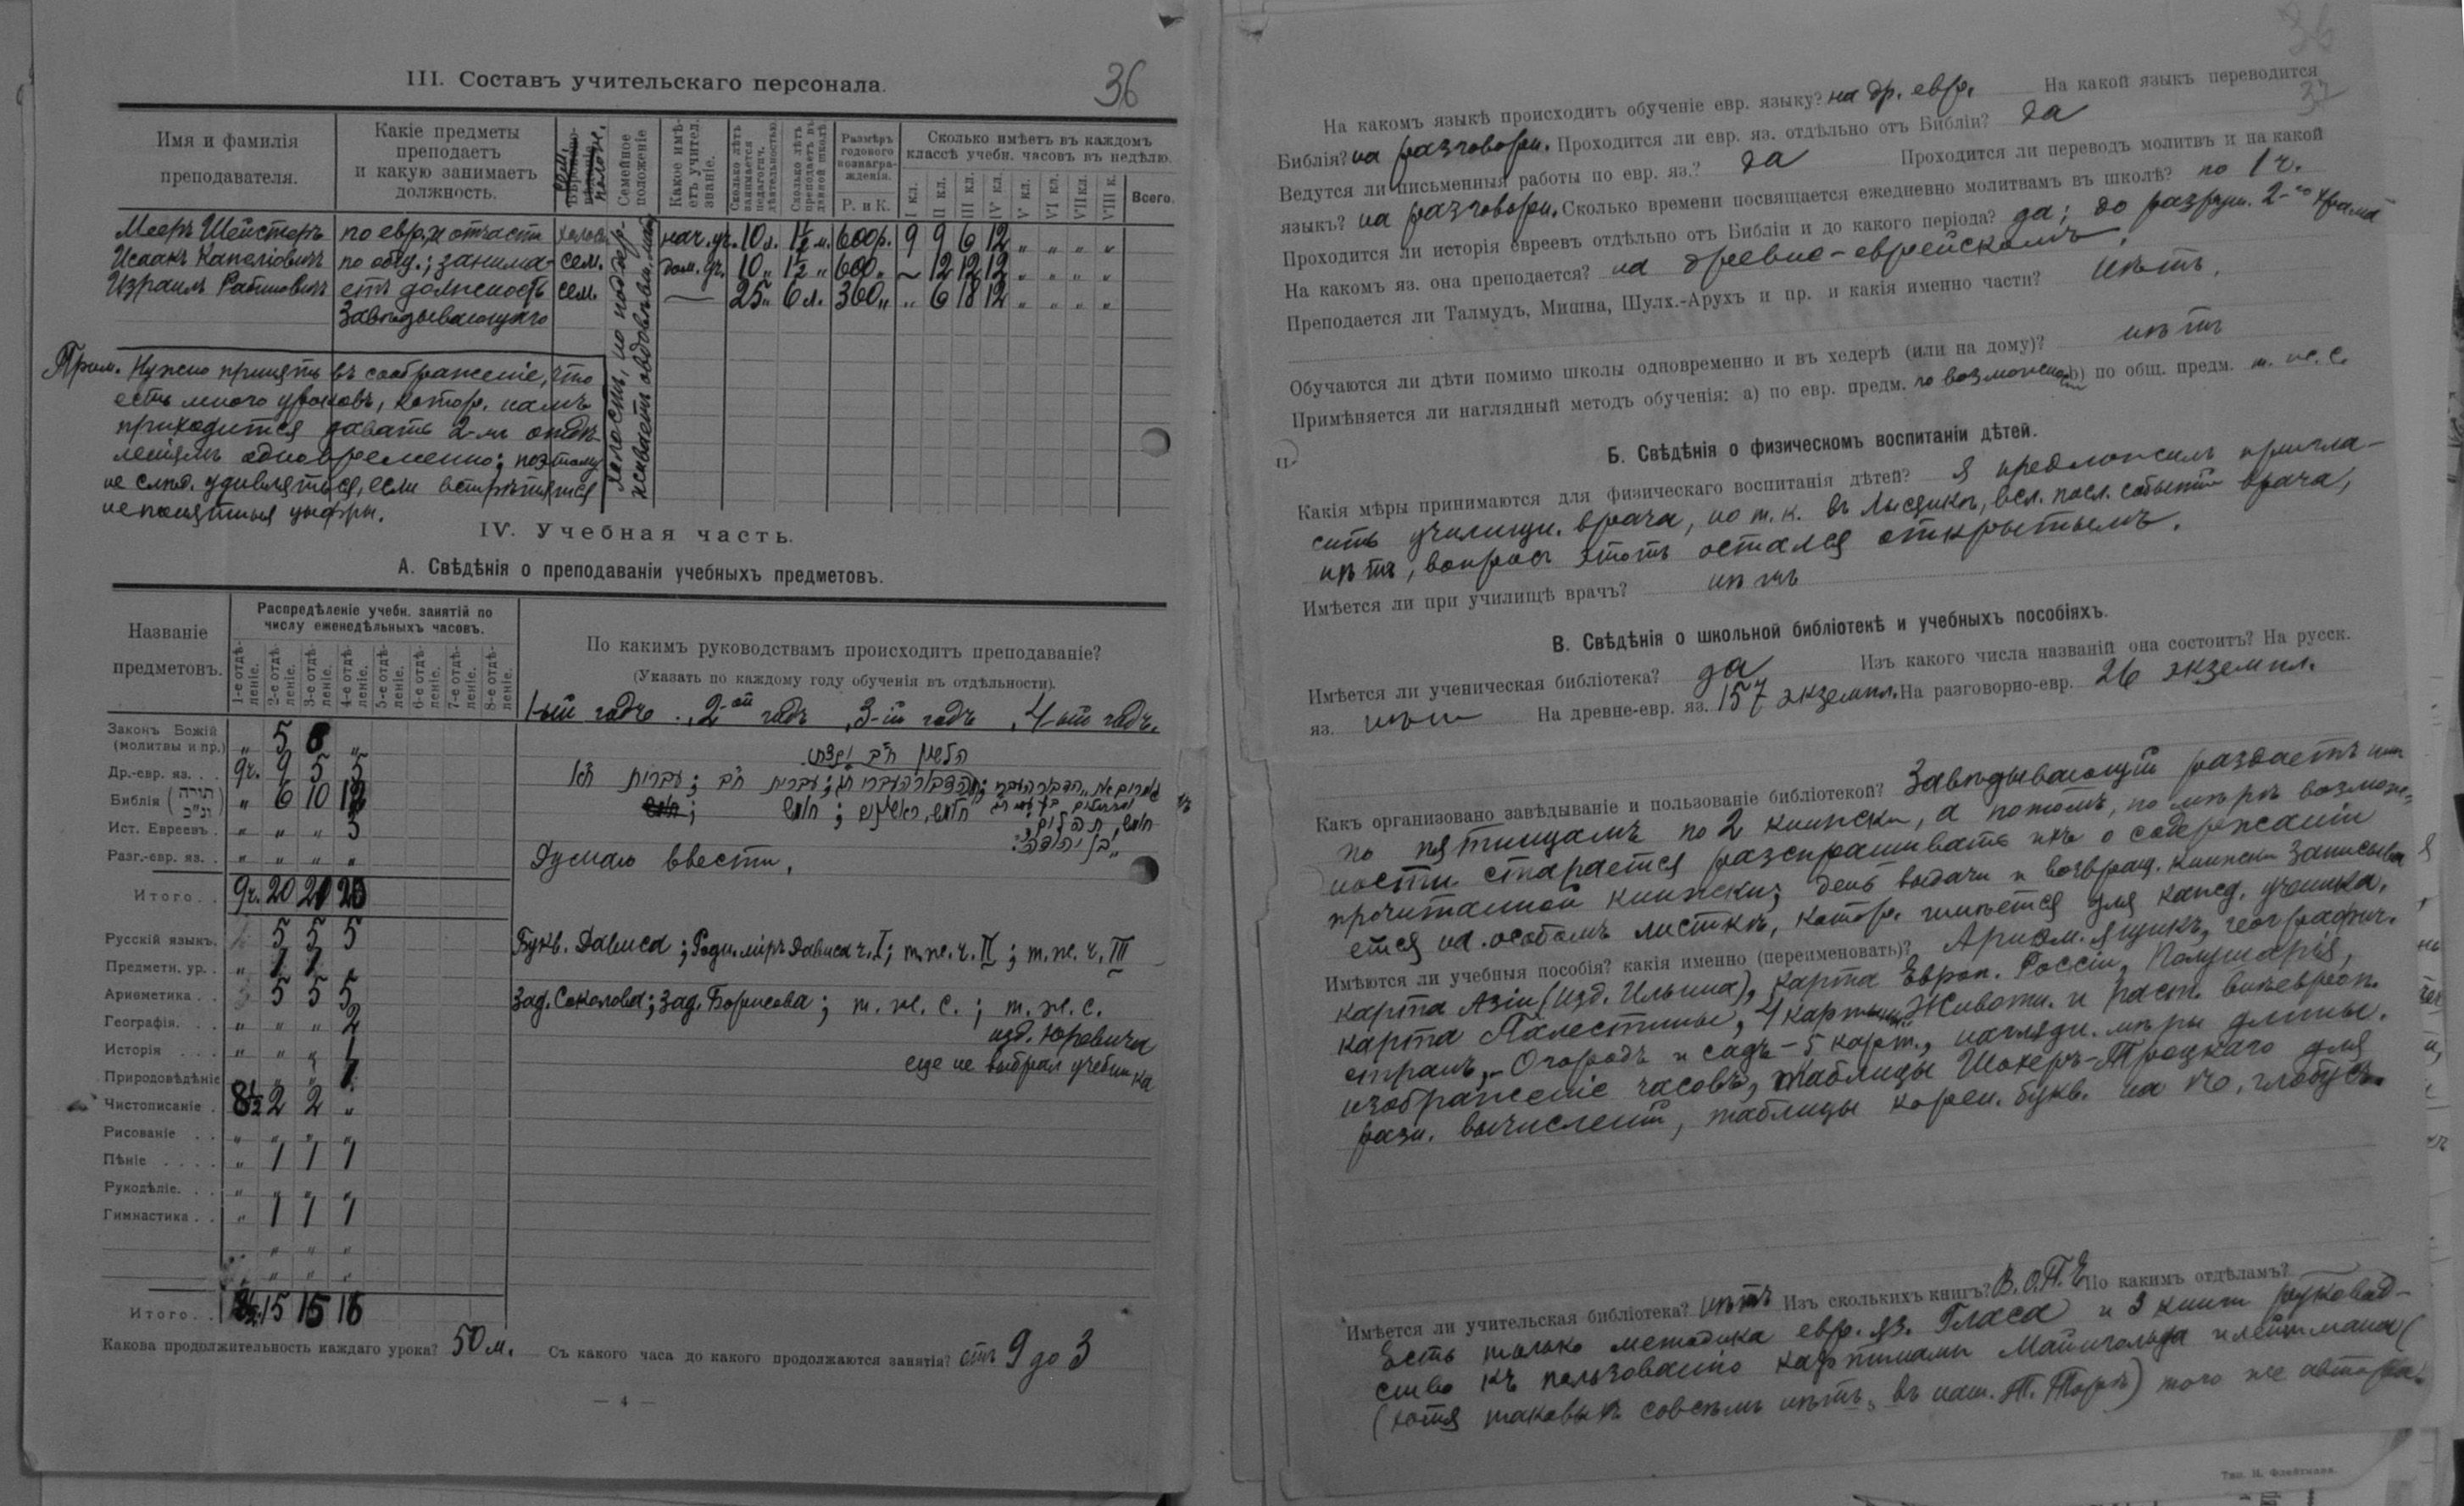 III. Составъ учительскаго персонала.
36
Имя и фамилія преподавателя.
Какіе предметы преподаетъ и какую занимаетъ должность.
Семейное положеніе
Какое имѣетъ учител. званіе.
Сколько лѣтъ занимается педагогич. дѣятельностью.
Сколько лѣтъ преподаетъ въ данной школѣ.
Размѣръ годового вознагражденія.
Р. и К.
Сколько имѣетъ въ каждомъ классѣ учебн. часовъ въ недѣлю.
I кл. II кл. III кл. IV кл. V кл. VI кл. VII кл. VIII к. Всего.
Мееръ Шейстеръ по евр. и отчасти холост. нач. уч. 10 л. 1½ м. 600 р. 9 9 6 12 „ „ „ „
Исаакъ Капеліовичъ по общ.; занима- сем. дом. уч. 10 „ 1½ „ 600 „ 12 12 12 „ „ „ „
Израиль Рабиновичъ етъ должность сем. — 25 „ 6 л. 360 „ „ 6 18 12 „ „ „ „
Завѣдывающаго
Холостъ, но поддер-
живаетъ овдовѣвш. мать
Прим. Нужно принять въ соображеніе, что
есть много уроковъ, котор. намъ
приходится давать 2-мъ отдѣ-
леніямъ одновременно; поэтому
не слѣд. удивляться, если встрѣтятся
непонятныя цыфры.
IV. Учебная часть.
А. Свѣдѣнія о преподаваніи учебныхъ предметовъ.
Названіе предметовъ.
Распредѣленіе учебн. занятій по числу еженедѣльныхъ часовъ.
1-е отдѣленіе. 2-е отдѣленіе. 3-е отдѣленіе. 4-е отдѣленіе. 5-е отдѣленіе. 6-е отдѣленіе. 7-е отдѣленіе. 8-е отдѣленіе.
По какимъ руководствамъ происходитъ преподаваніе?
(Указать по каждому году обученія въ отдѣльности).
1-ый годъ, 2-ой годъ, 3-ій годъ, 4-ый годъ.
Законъ Божій
(молитвы и пр.) „ 5 6 „
Др.-евр. яз. . . 9 ч. 9 5 5
Библія (תורה ונ"ב) „ 6 10 12
חומש ; חומש, ראשונים
חומש, תהלים,
"בן יהודה"
Ист. Евреевъ . „ „ „ 3
Разг.-евр. яз. . „ „ „ „ Думаю ввести.
Итого . . 9 ч. 20 21 20
Русскій языкъ. 5 5 5 Букв. Дависа; Родн. міръ Дависа ч. I; т. же. ч. II; т. же. ч. III
Предметн. ур. . „ 1 1 „
Ариѳметика . . 5 5 5 Зад. Соколова; Зад. Борисова; т. ж. с.; т. ж. с.
Географія. . . „ „ „ 2 изд. Юревича
Исторія . . . „ „ „ 1 еще не выбралъ учебника
Природовѣдѣніе „ „ „ 1
Чистописаніе . 8½ 2 2 „
Рисованіе . . „ „ „ „
Пѣніе . . . . „ 1 1 1
Рукодѣліе. . . „ „ „ „
Гимнастика . . „ 1 1 1
Итого . . 8½ 15 15 16
Какова продолжительность каждаго урока? 50 м. Съ какого часа до какого продолжаются занятія? отъ 9 до 3
— 4 —
36
37
На какомъ языкѣ происходитъ обученіе евр. языку? на др. евр. На какой языкъ переводится
Библія? на разговорн. Проходится ли евр. яз. отдѣльно отъ Библіи? да
Ведутся ли письменныя работы по евр. яз.? да Проходится ли переводъ молитвъ и на какой
языкъ? на разговорн. Сколько времени посвящается ежедневно молитвамъ въ школѣ? по 1 ч.
Проходится ли исторія евреевъ отдѣльно отъ Библіи и до какого періода? да; до разруш. 2-го храма
На какомъ яз. она преподается? на древне-еврейскомъ.
Преподается ли Талмудъ, Мишна, Шулх.-Арухъ и пр. и какія именно части? нѣтъ.
Обучаются ли дѣти помимо школы одновременно и въ хедерѣ (или на дому)? нѣтъ
Примѣняется ли наглядный методъ обученія: а) по евр. предм. по возможности б) по общ. предм. т. же. с.
Б. Свѣдѣнія о физическомъ воспитаніи дѣтей.
Какія мѣры принимаются для физическаго воспитанія дѣтей? Я предложилъ пригла-
сить училищн. врача, но т. к. въ Лысянкѣ, всл. посл. событій врача,
нѣтъ, вопросъ этотъ остался открытымъ.
Имѣется ли при училищѣ врачъ? нѣтъ
В. Свѣдѣнія о школьной библіотекѣ и учебныхъ пособіяхъ.
Имѣется ли ученическая библіотека? да Изъ какого числа названій она состоитъ? На русск.
яз. нѣтъ На древне-евр. яз. 157 экземпл. На разговорно-евр. 26 экземпл.
Какъ организовано завѣдываніе и пользованіе библіотекой? Завѣдывающій раздаетъ имъ
по пятницамъ по 2 книжки, а потомъ, по мѣрѣ возмож-
ности старается разспрашивать ихъ о содержаніи
прочитанной книжки; день выдачи и возвращ. книжки записыва
ется на особомъ листкѣ, котор. имѣется для кажд. ученика.
Имѣются ли учебныя пособія? какія именно (переименовать)? Ариѳм. ящикъ, географич.
карта Азіи (изд. Ильина), карта Европ. Россіи, Полушарія,
карта Палестины, 4 картины Животн. и раст. внѣевроп.
странъ, Огородъ и садъ – 5 карт., наглядн. мѣры длины.
изображеніе часовъ, таблицы Шохеръ-Троцкаго для
разн. вычисленій, таблицы корен. букв. на ѣ, глобусъ.
Имѣется ли учительская библіотека? нѣтъ Изъ сколькихъ книгъ? В. О. П. Е По какимъ отдѣламъ?
Есть только методика евр. яз. Гласа и 3 книги руковод-
ство къ пользованію картинами Майнгольда и Лейтмана
(хотя таковыхъ совсѣмъ нѣтъ, въ наш. Т. Торѣ) того же автора.
Тип. И. Флейтмана.